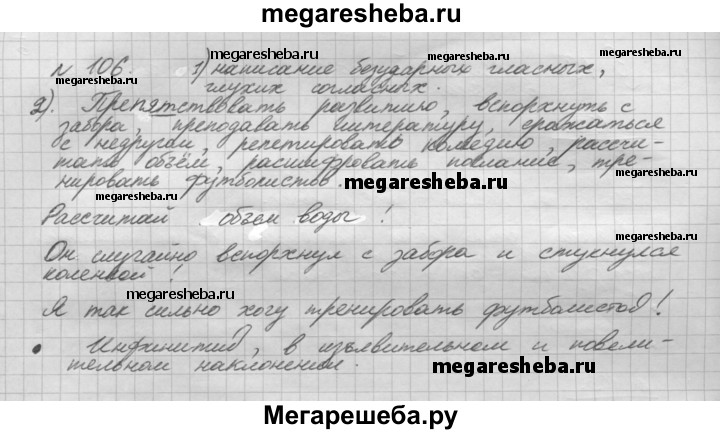 megaresheba.ru
№ 106. 1) написание безударных гласных, megaresheba.ru
megaresheba.ru глухих согласных.
2). Препятствовать развитию, вспорхнуть с
забора, преподавать литературу, сражаться
с недругом, репетировать комедию, рассчи-
тать объём, расшифровать послание, тре-
нировать футболистов. megaresheba.ru
megaresheba.ru
Рассчитай объем воды!
megaresheba.ru
Он случайно вспорхнул с забора и стукнулся
коленкой!
megaresheba.ru
Я так сильно хочу тренировать футболистов!
megaresheba.ru
• Инфинитив, в изъявительном и повели-
тельном наклонении. megaresheba.ru
Мегарешеба.ру